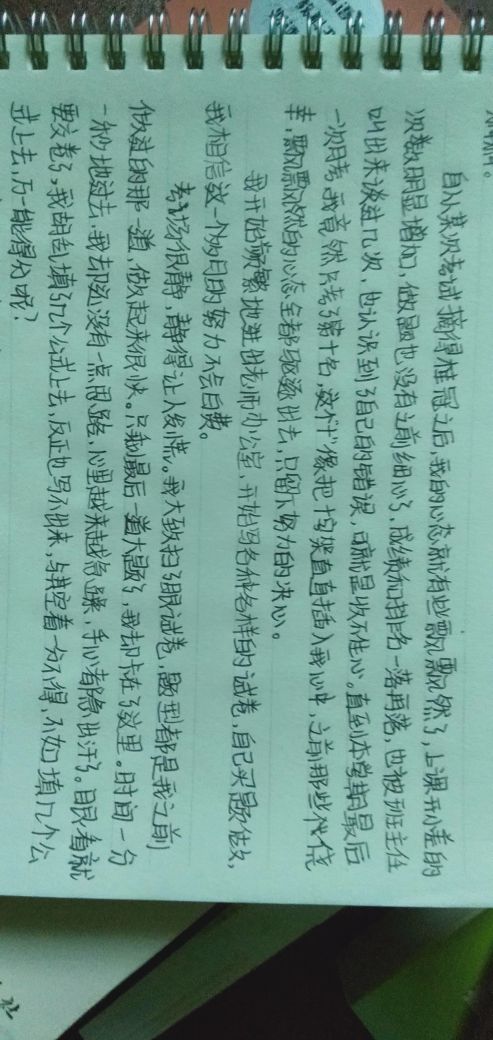 自从某次考试摘得桂冠之后,我的心态就有些飘飘然了,上课开小差的
次数明显增加,做题也没有之前细心了,成绩和排名一落再落,也被班主任
叫出来谈过几次,也认识到了自己的错误,可就是收不住心。直到本学期最后
一次月考,我竟然只考了第十名,这个"十"像把十字架直直插入我心中,之前那些侥
幸,飘飘然的心态全都驱逐出去,只留下努力的决心。
我开始频繁地进出老师办公室,开始写各种各样的试卷,自己买题做,
我相信这一个多月的努力不会白费。
考场很静,静得让人发慌。我大致扫了眼试卷,题型都是我之前
做过的那一道,做起来很快。只剩最后一道大题了,我却卡在了这里。时间一分
一秒地过去,我却还没有一点思路,心里越来越急躁,手心都急出汗了。眼看着就
要交卷了,我胡乱填了几个公式上去,反正也写不出来,与其空着一分不得,不如填几个公
式上去,万一能得分呢?